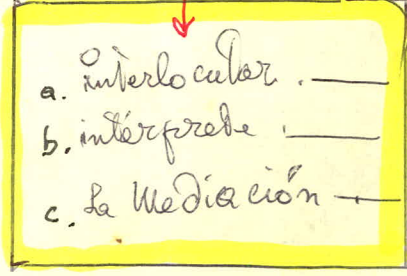 a. interlocutor. ___
b. intérprete. ___
c. La Mediación ___